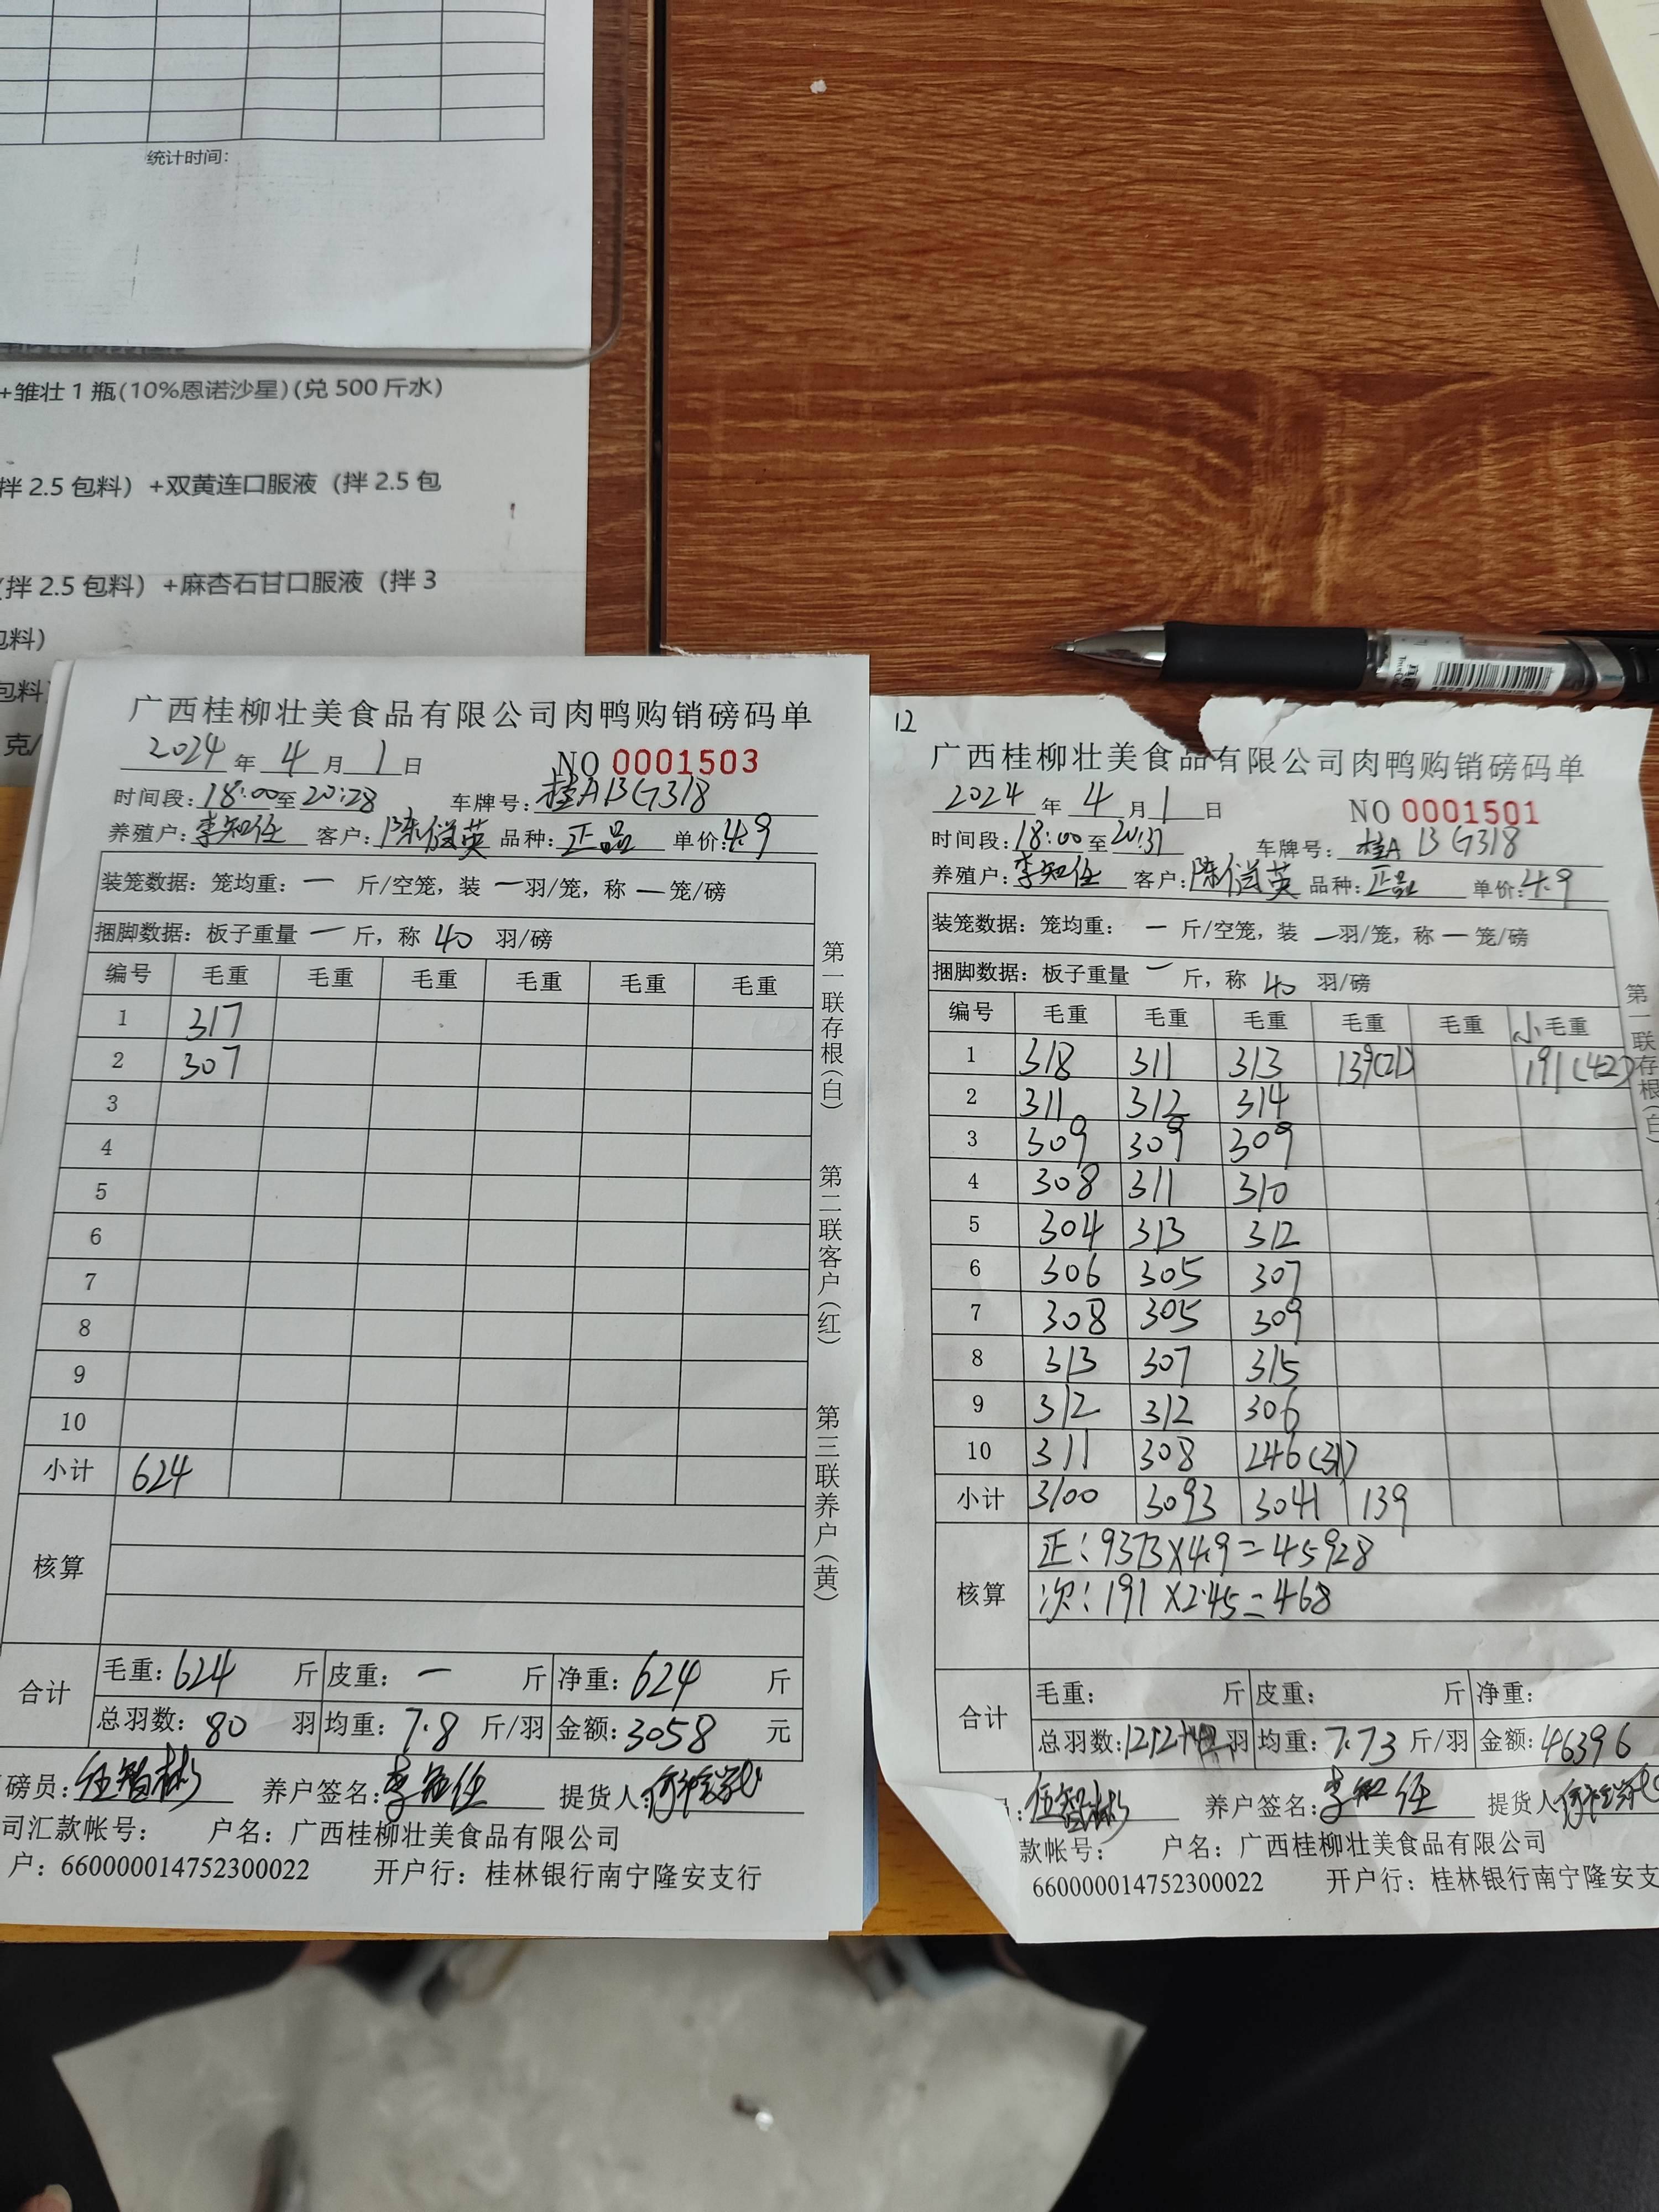 统计时间：
+雏壮 1 瓶(10%恩诺沙星)(兑 500 斤水)
拌 2.5 包料）+双黄连口服液（拌 2.5 包
(拌 2.5 包料）+麻杏石甘口服液（拌 3
包料）
包料
克/
广西桂柳壮美食品有限公司肉鸭购销磅码单
2024 年 4 月 1 日 NO 0001503
时间段: 18:00 至 20:28 车牌号: 桂A BG318
养殖户: 李知任 客户: 陈信英 品种: 正品 单价: 4.9
装笼数据: 笼均重: 一 斤/空笼, 装 一 羽/笼, 称 一 笼/磅
捆脚数据: 板子重量 一 斤, 称 40 羽/磅
编号 毛重 毛重 毛重 毛重 毛重 毛重
1 317
2 307
3
4
5
6
7
8
9
10
小计 624
核算
合计 毛重: 624 斤 皮重: 一 斤 净重: 624 斤
总羽数: 80 羽 均重: 7.8 斤/羽 金额: 3058 元
磅员: 养户签名: 李知任 提货人:
司汇款帐号: 户名: 广西桂柳壮美食品有限公司
户: 660000014752300022 开户行: 桂林银行南宁隆安支行
第一联存根(白) 第二联客户(红) 第三联养户(黄)
12
广西桂柳壮美食品有限公司肉鸭购销磅码单
2024 年 4 月 1 日 NO 0001501
时间段: 18:00 至 20:37 车牌号: 桂A BG318
养殖户: 李知任 客户: 陈信英 品种: 正品 单价: 4.9
装笼数据: 笼均重: 一 斤/空笼, 装 一 羽/笼, 称 一 笼/磅
捆脚数据: 板子重量 一 斤, 称 40 羽/磅
编号 毛重 毛重 毛重 毛重 毛重 小毛重
1 318 311 313 139(21) 191(42)
2 311 312 314
3 309 309 309
4 308 311 310
5 304 313 312
6 306 305 307
7 308 305 309
8 313 307 315
9 312 312 306
10 311 308 246(31)
小计 3100 3093 3041 139
核算 正: 9373×4.9=45928
次: 191×2.45=468
合计 毛重: 斤 皮重: 斤 净重:
总羽数: 1212+42 羽 均重: 7.73 斤/羽 金额: 46396
养户签名: 李知任 提货人
款帐号: 户名: 广西桂柳壮美食品有限公司
660000014752300022 开户行: 桂林银行南宁隆安支
第一联存根(白)